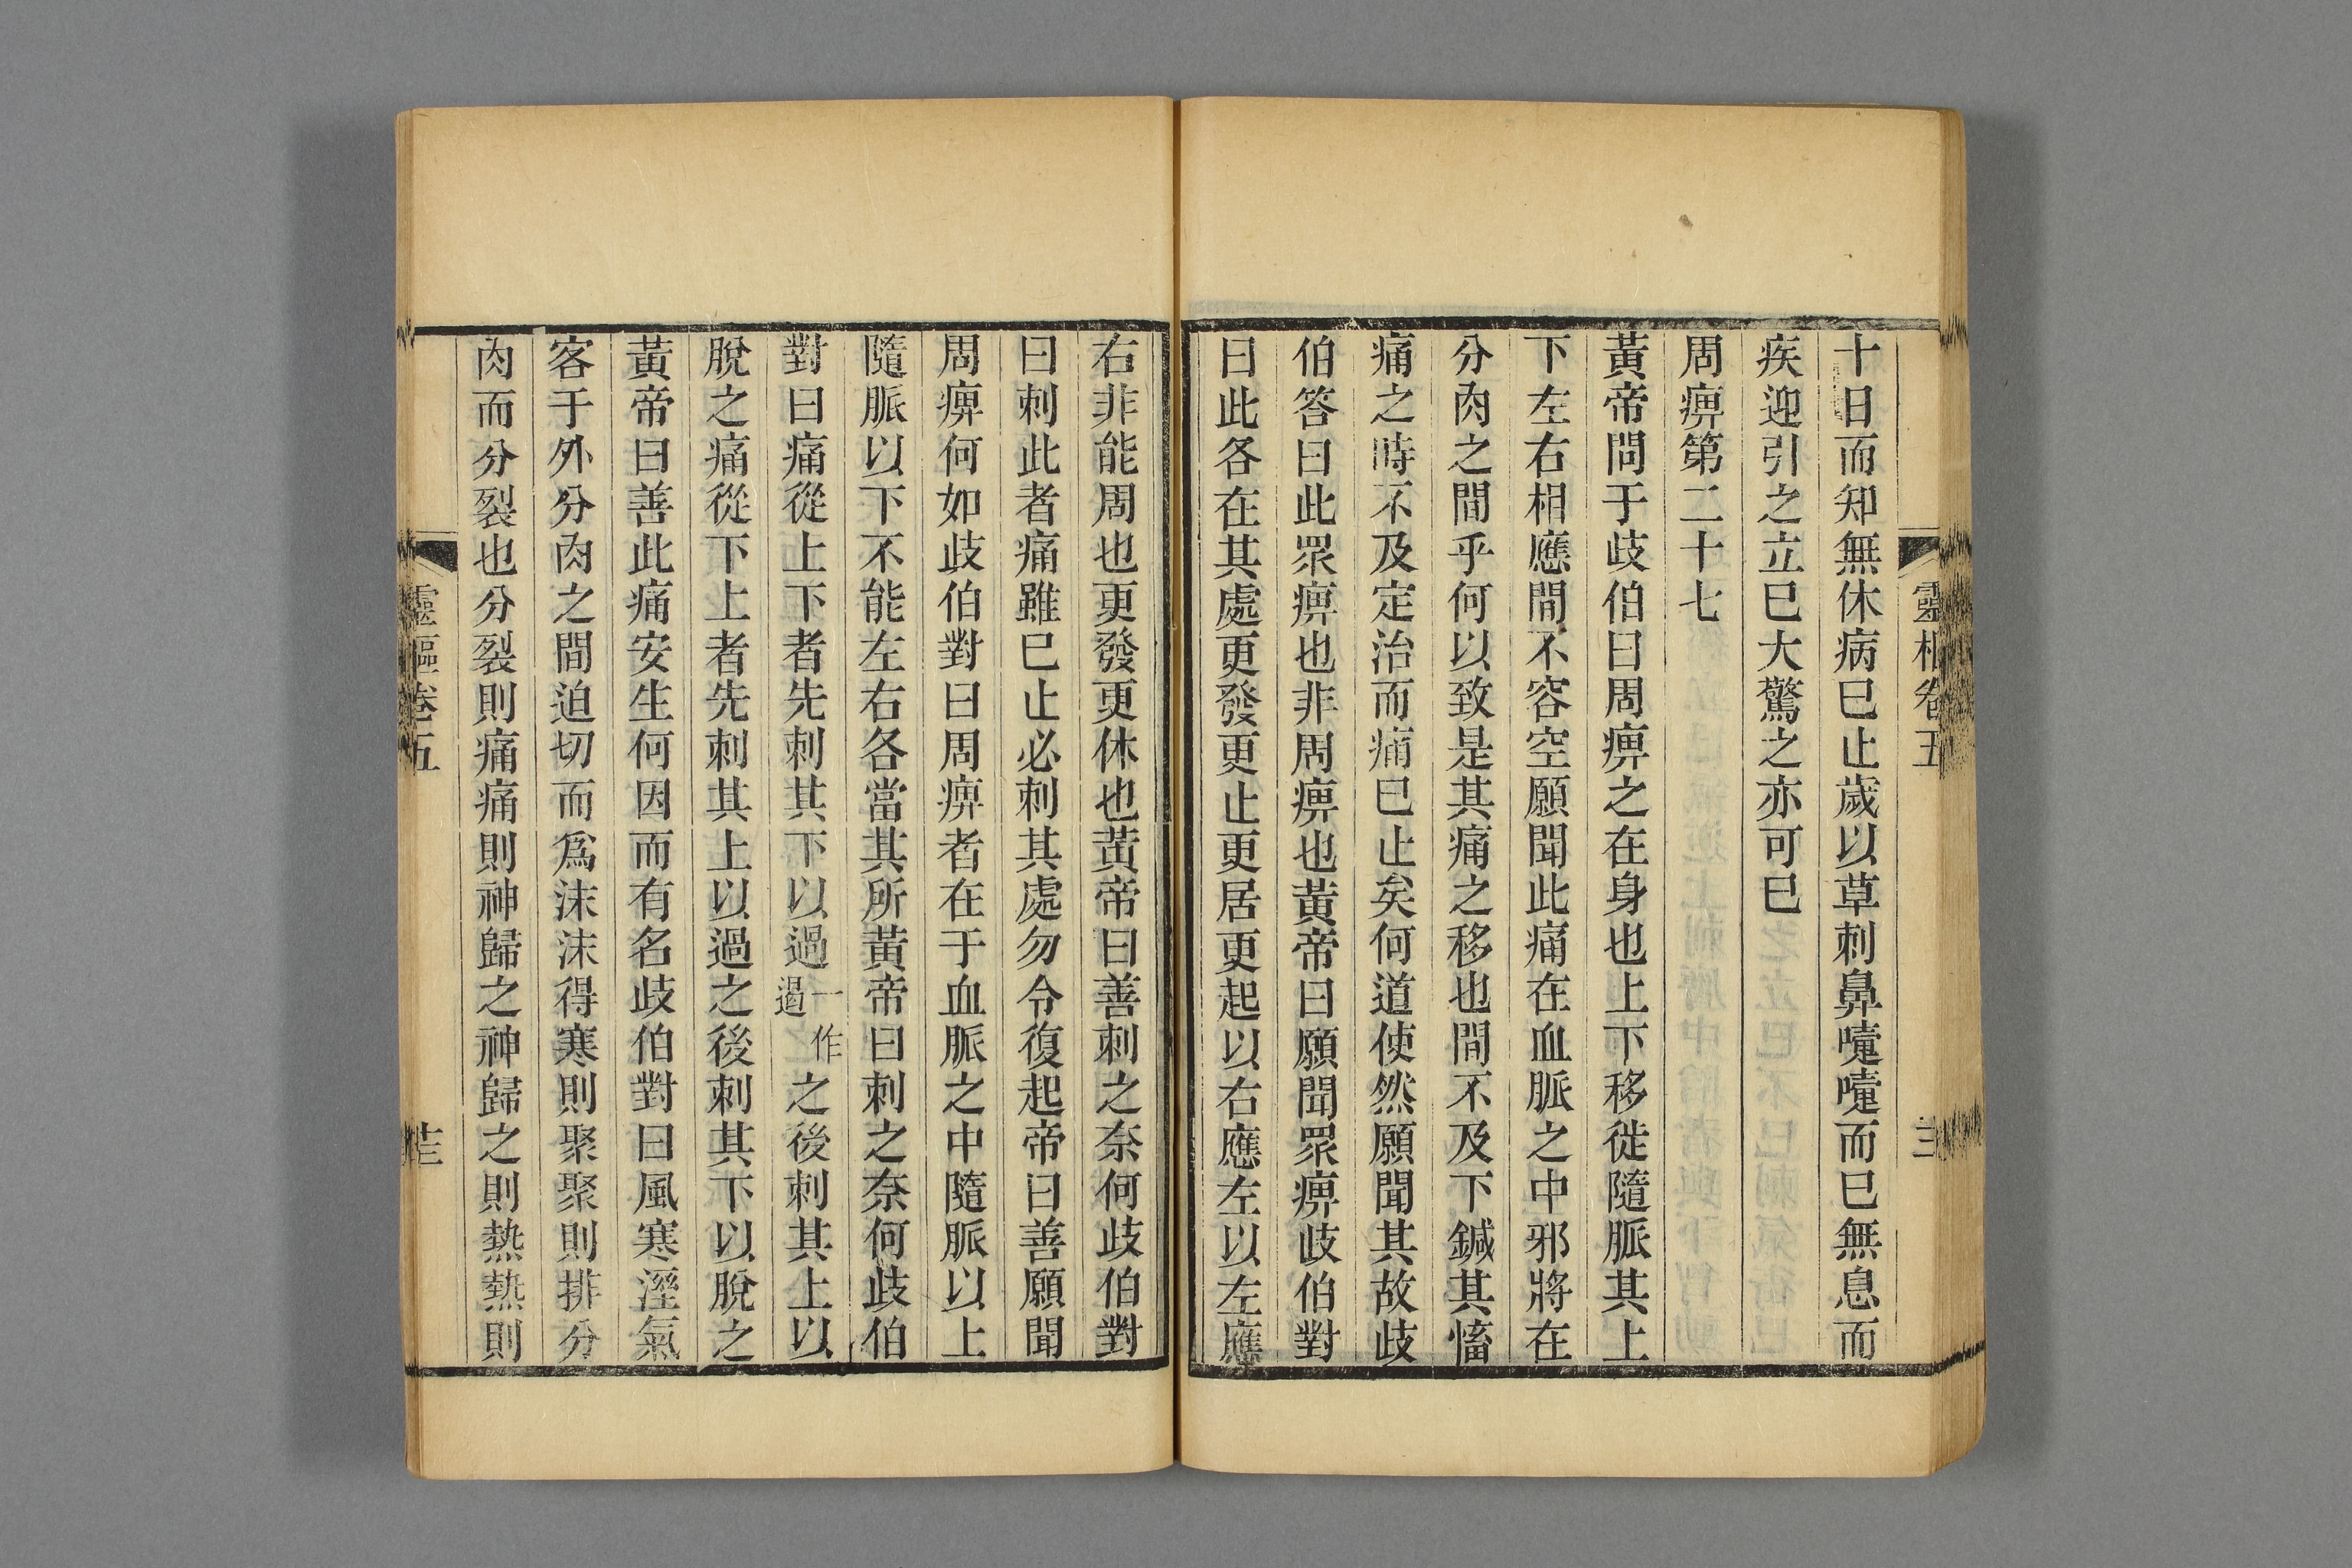 十日而知無休病巳止歲以草刺鼻嚏嚏而巳無息而
疾迎引之立巳大驚之亦可巳
周痹第二十七
黃帝問于歧伯曰周痹之在身也上下移徙隨脈其上
下左右相應間不容空願聞此痛在血脈之中邪將在
分肉之間乎何以致是其痛之移也間不及下鍼其慉
痛之時不及定治而痛巳止矣何道使然願聞其故歧
伯答曰此眾痹也非周痹也黃帝曰願聞眾痹歧伯對
曰此各在其處更發更止更居更起以右應左以左應
右非能周也更發更休也黃帝曰善刺之奈何歧伯對
曰刺此者痛雖巳止必刺其處勿令復起帝曰善願聞
周痹何如歧伯對曰周痹者在于血脈之中隨脈以上
隨脈以下不能左右各當其所黃帝曰刺之奈何歧伯
對曰痛從上下者先刺其下以過一作遏之後刺其上以
脫之痛從下上者先刺其上以過之後刺其下以脫之
黃帝曰善此痛安生何因而有名歧伯對曰風寒溼氣
客于外分肉之間迫切而為沫沫得寒則聚聚則排分
肉而分裂也分裂則痛痛則神歸之神歸之則熱熱則
靈樞卷五